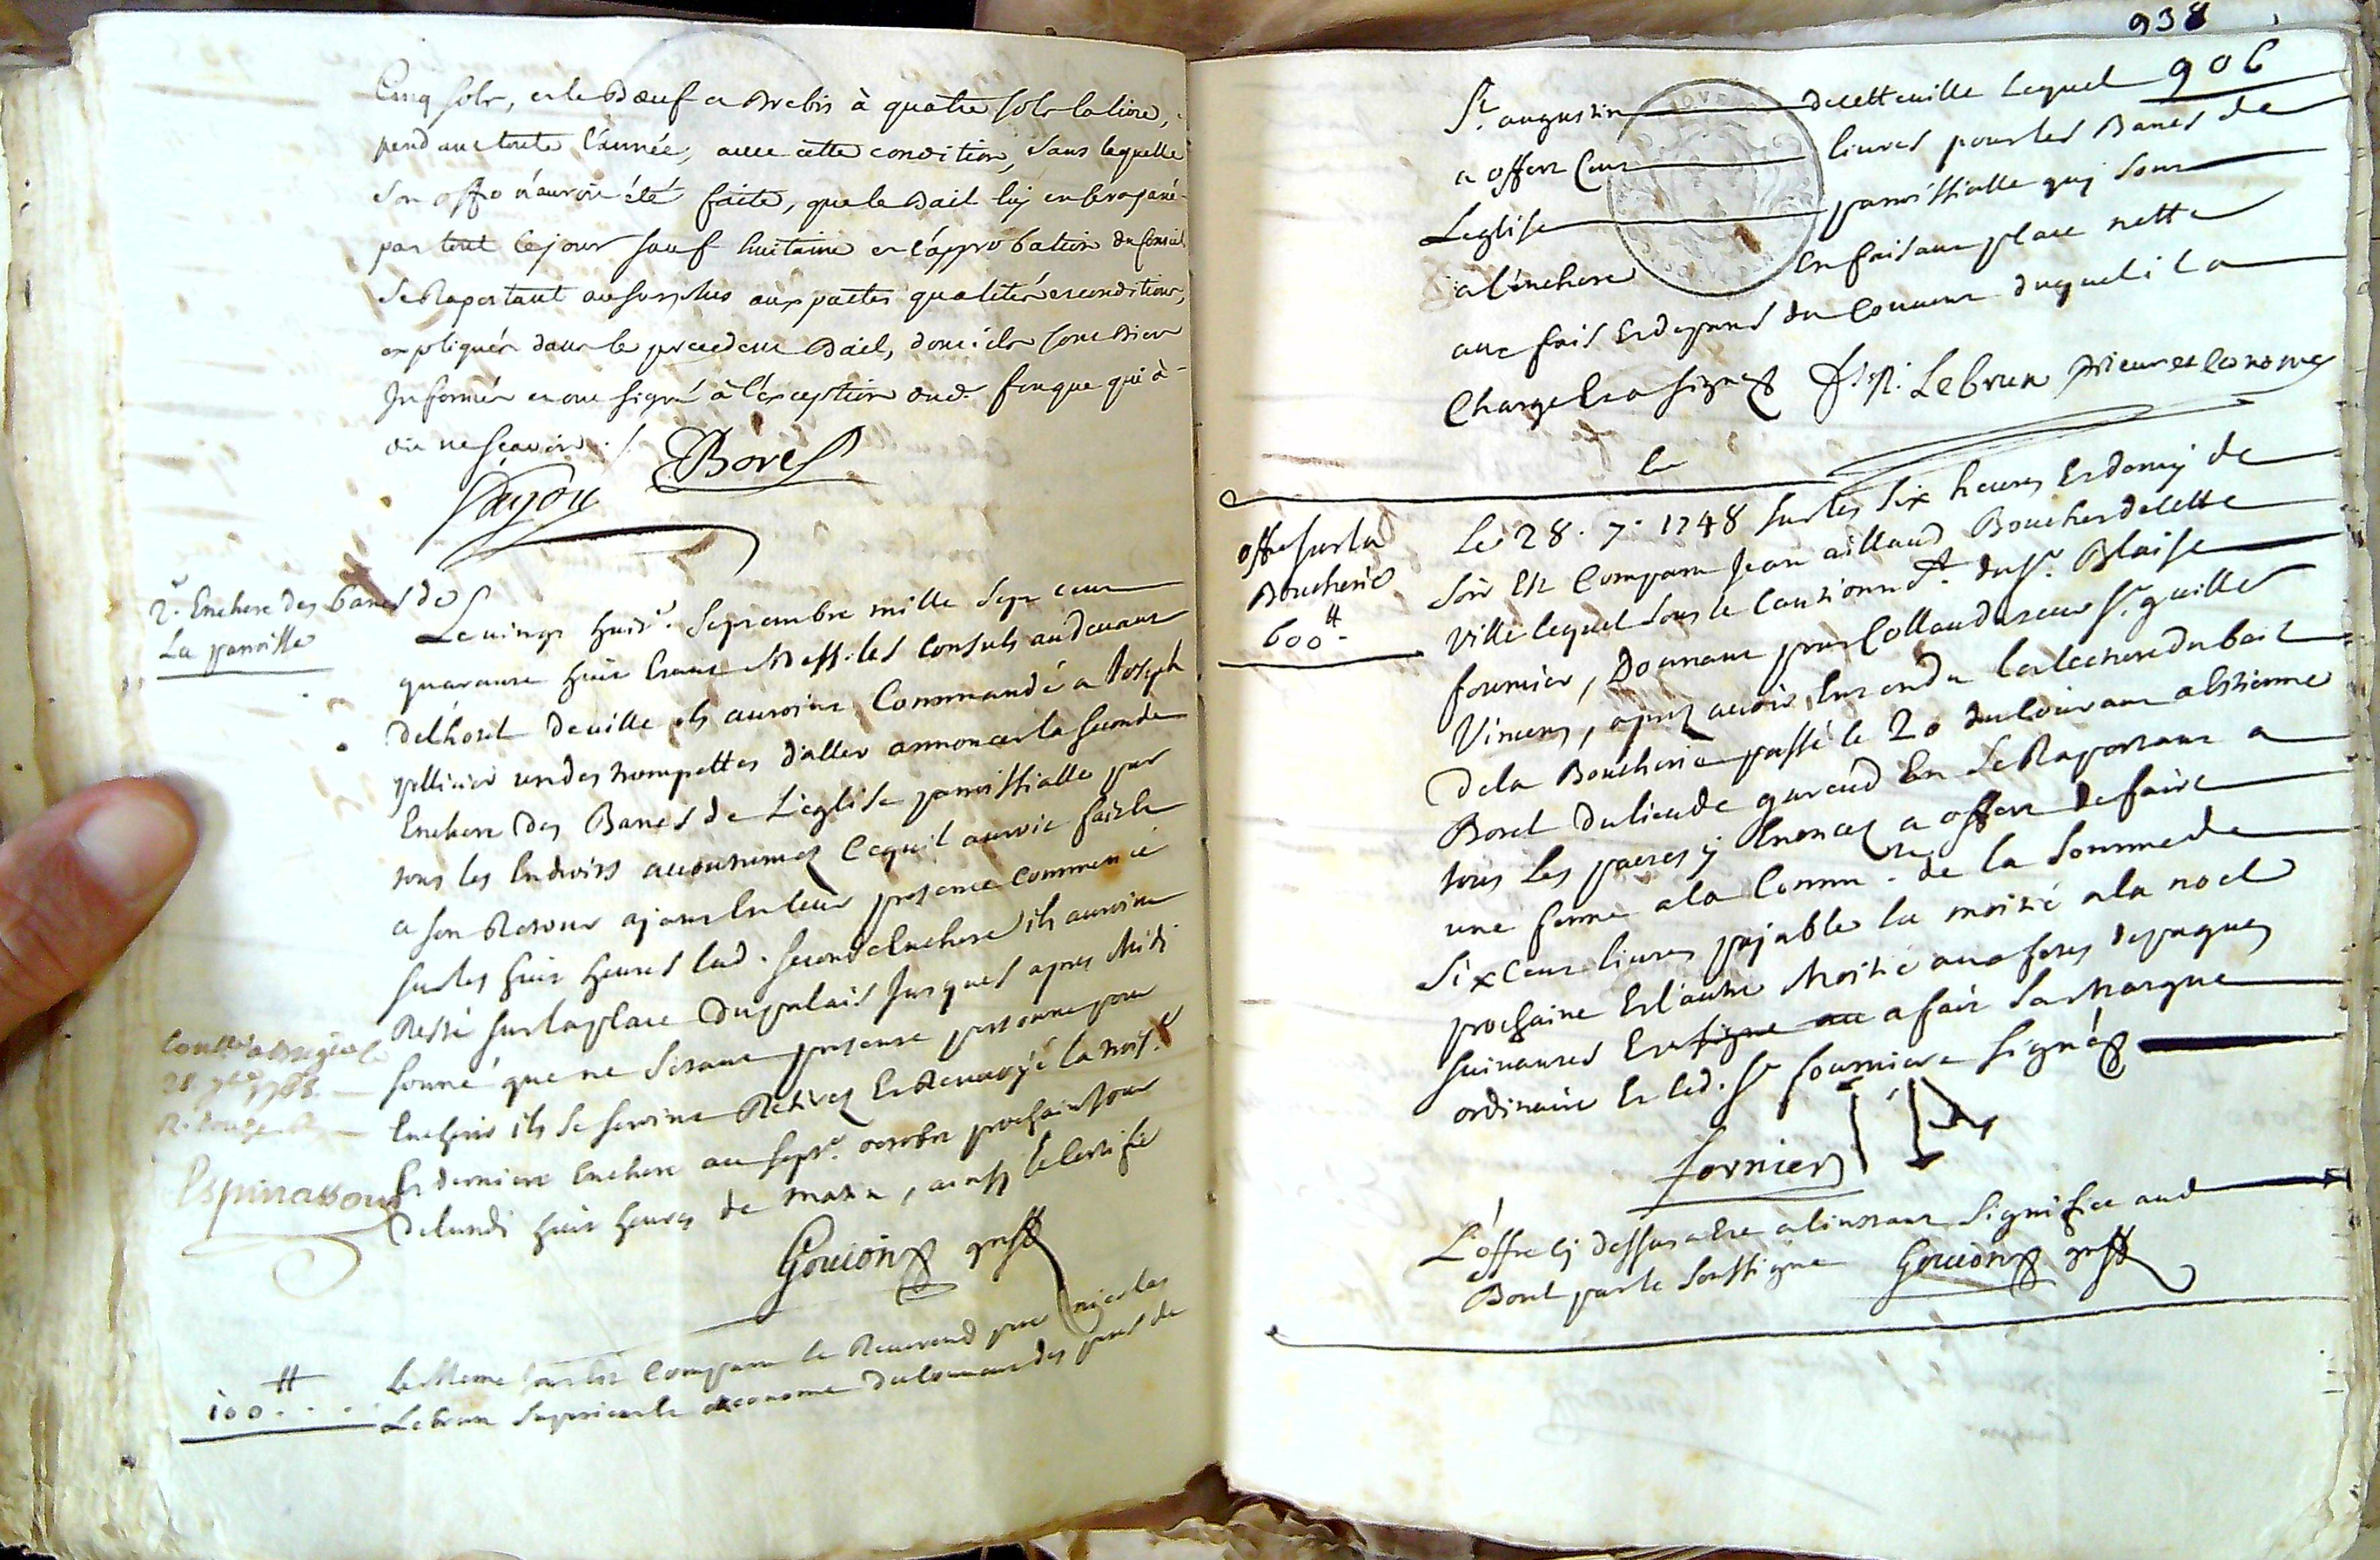 Cinq sols, et le Bœuf et Brebis à quatre sols la livre,
pendant toute l'année, avec cette condition, sans laquelle
son offre n'auroit été faite, que le Bail luy en sera passé
par tout le jour sauf huitaine et l'approbation du Conseil
se Raportant au surplus aux pactes qualités et conditions,
expliqués dans le precedent Bail, dont ils sont bien
Informés et ont signé à l'éxception dud. fouque qui à
dit ne sçavoir ./.
Borel
2.e Enchere des bancs de
La paroisse
Le vingt huit.e Septembre mille Sept cent
quarante huit Etant Mess. les Consuls au devant
de l'hotel de ville ils auroint Commandé a Joseph
pellicier un des trompettes d'aller annoncer la seconde
Enchere des Bancs de L'eglise paroissialle par
tous les Endroits accoutumez Ce quil auroit fait et
a son Retour ajant en leur presence Commencé
sur les huit heures lad. seconde Enchere ils auroint
Resté sur la place du palais Jusques apres Midi
sonné que ne s'etant presenté personne pour
Encherir ils se seroint Retirez Et Renvoyé la trois.e
Et derniere Enchere au sept.e octobre prochain Jour
de lundi huit heures de matin, ainsy le Certifie
Espinassoux
Gouion greff
100 ₶ . . . .
Le Meme Jour Est Comparu le Reverend pere nicolas
Lebrun Superieur et œconome du Couvent des peres de
938
906
St. augustin de cette ville Lequel
a offert Cent livres pour les Bancs de
Leglise paroissialle qui sont
a l'enchere En faisant place nette
aux frais Et depens du Couvent duquel il a
Charge Et a signez f. n. Lebrun prieur et économe
Le
offre sur la
Boucherie
600 ₶
Le 28. 7. 1748 sur les six heures Et demy de
soir Est Comparu Jean aillaud Boucher de cette
ville lequel sous le Cautionn.t du Sr. Blaise
fournier, Donnant pour Collaudateur Sr. guilles
Vincens, aprez avoir Entendu la lecture du bail
de la Boucherie passé le 20 du Courant a Estienne
Borel du lieu de gareoud En se Raportant a
tous Les pactes y Enoncez a offert de faire
une ferme a la Commu.té de la somme de
six Cent livres pajable la moitié a la noel
prochaine Et l'autre Moitié aux fetes de paques
suivantes Et signe au a fait sa Marque
ordinaire Et led. Sr fournier a signéz
fornier
L'offre cy dessus a Eté a l'instant Signifiée aud
Borel par le soussigné Gouion greff